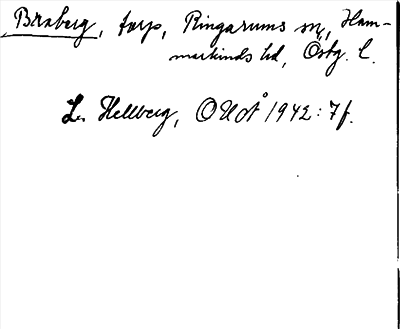 Braberg, torp, Ringarums sn, Ham-
markinds hd, Östg. l.
L. Hellberg, OUÅ 1942: 7f.